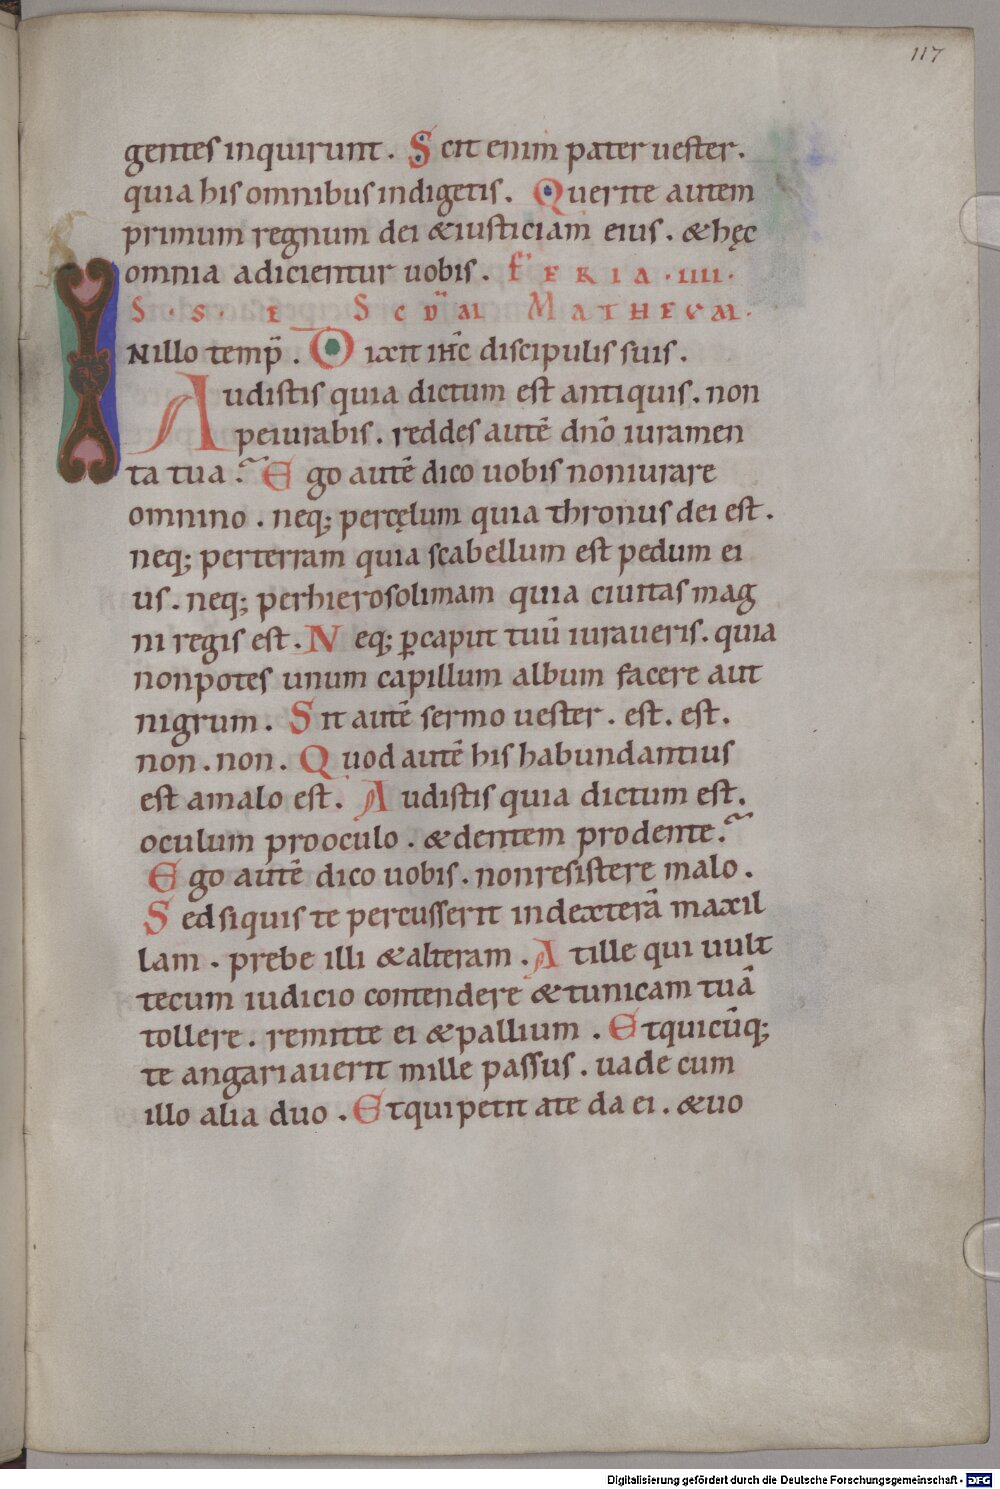 117
gentes inquirunt. Scit enim pater uester.
quia his omnibus indigetis. Querite autem
primum regnum dei & iusticiam eius. & hęc
omnia adicientur uobis. FERIA .IIII.
S. S. E SCDM MATHEVM.
INillo temp̄. Dixit ih̄c discipulis suis.
Audistis quia dictum est antiquis. non
peiurabis. reddes autē dn̄o iuramen
ta tua. Ego autē dico uobis non iurare
omnino. neq; per cęlum quia thronus dei est.
neq; per terram quia scabellum est pedum ei
us. neq; per hierosolimam quia ciuitas mag
ni regis est. Neq; ꝑ caput tuū iuraueris. quia
non potes unum capillum album facere aut
nigrum. Sit autē sermo uester. est. est.
non. non. Quod autē his habundantius
est a malo est. Audistis quia dictum est.
oculum pro oculo. & dentem pro dente.
Ego autē dico uobis. non resistere malo.
Sed si quis te percusserit in dexterā maxil
lam. prebe illi & alteram. At ille qui uult
tecum iudicio contendere & tunicam tuā
tollere. remitte ei & pallium. Et quicūq;
te angariauerit mille passus. uade cum
illo alia duo. Et qui petit a te da ei. & uo
Digitalisierung gefördert durch die Deutsche Forschungsgemeinschaft - DFG